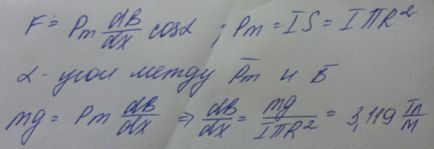 F = Pm dB/dx cosα ; Pm = IS = IπR²
α - угол между P̄m и B̄
mg = Pm dB/dx ⇒ dB/dx = mg/IπR² = 3,119 Тл/м